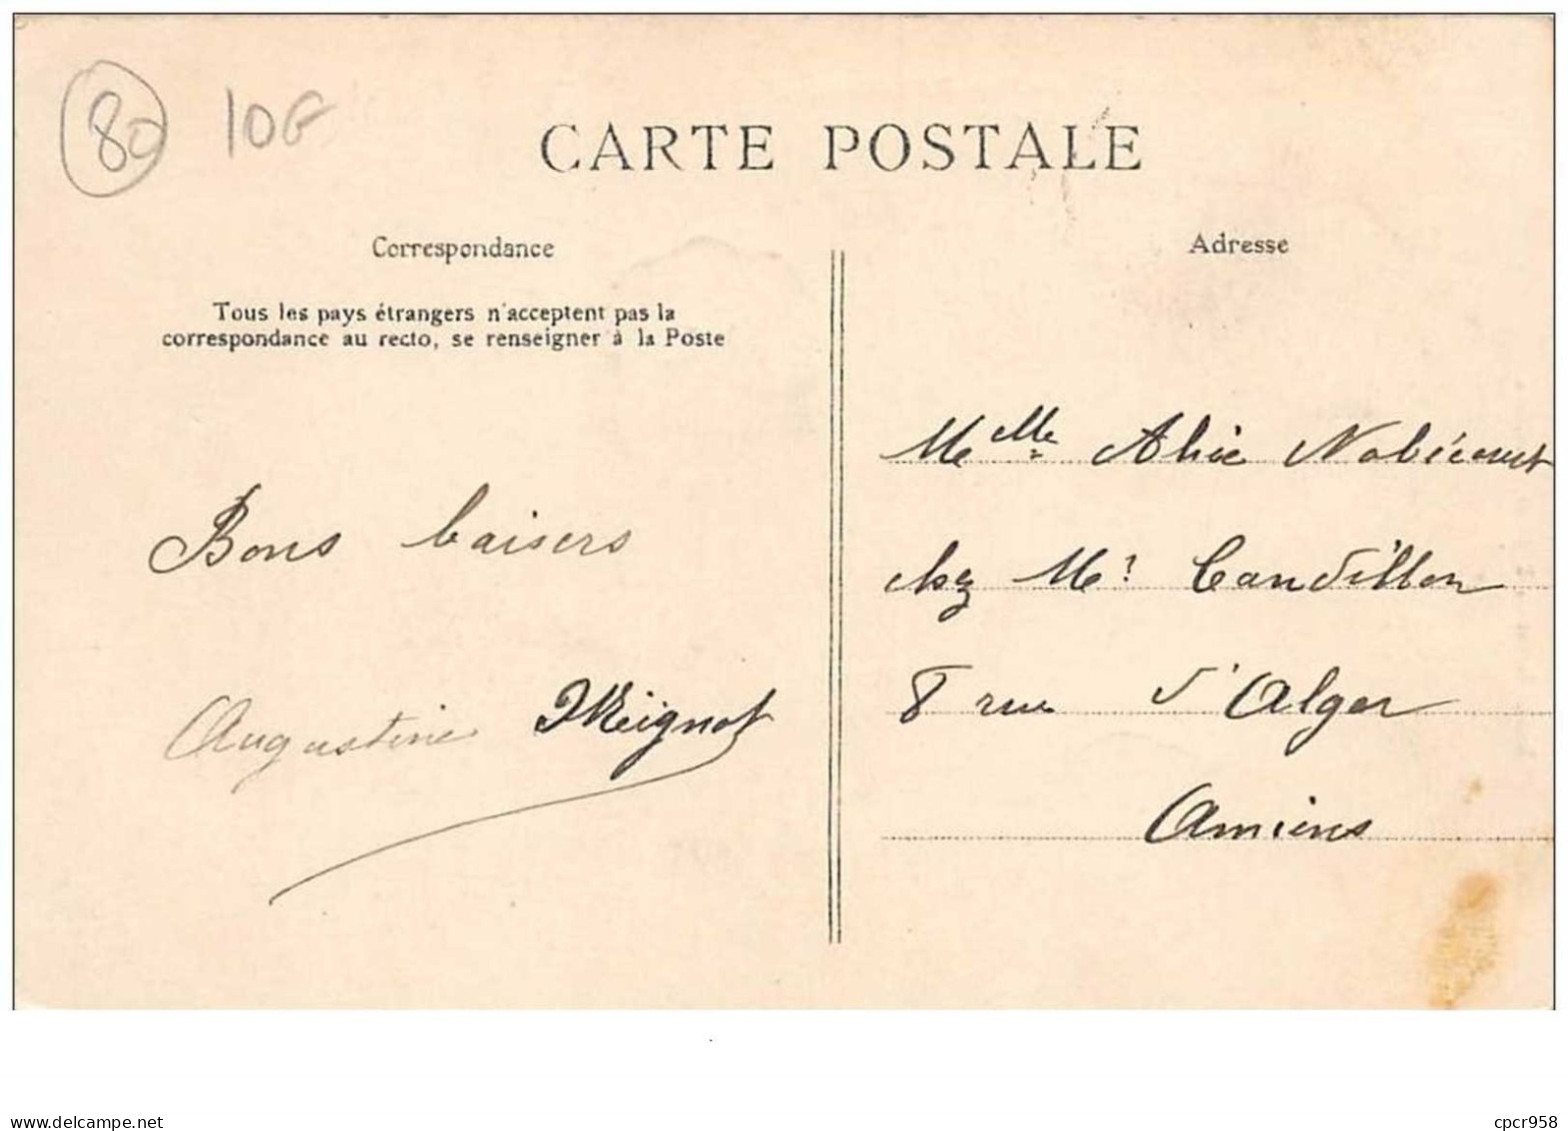 80 10F
CARTE POSTALE
Correspondance
Tous les pays étrangers n'acceptent pas la
correspondance au recto, se renseigner à la Poste
Bons baisers
Augustine Meignot
Adresse
Melle Alice Nobécourt
chez Mr Candillon
8 rue d'Alger
Amiens
www.delcampe.net
cpcr958